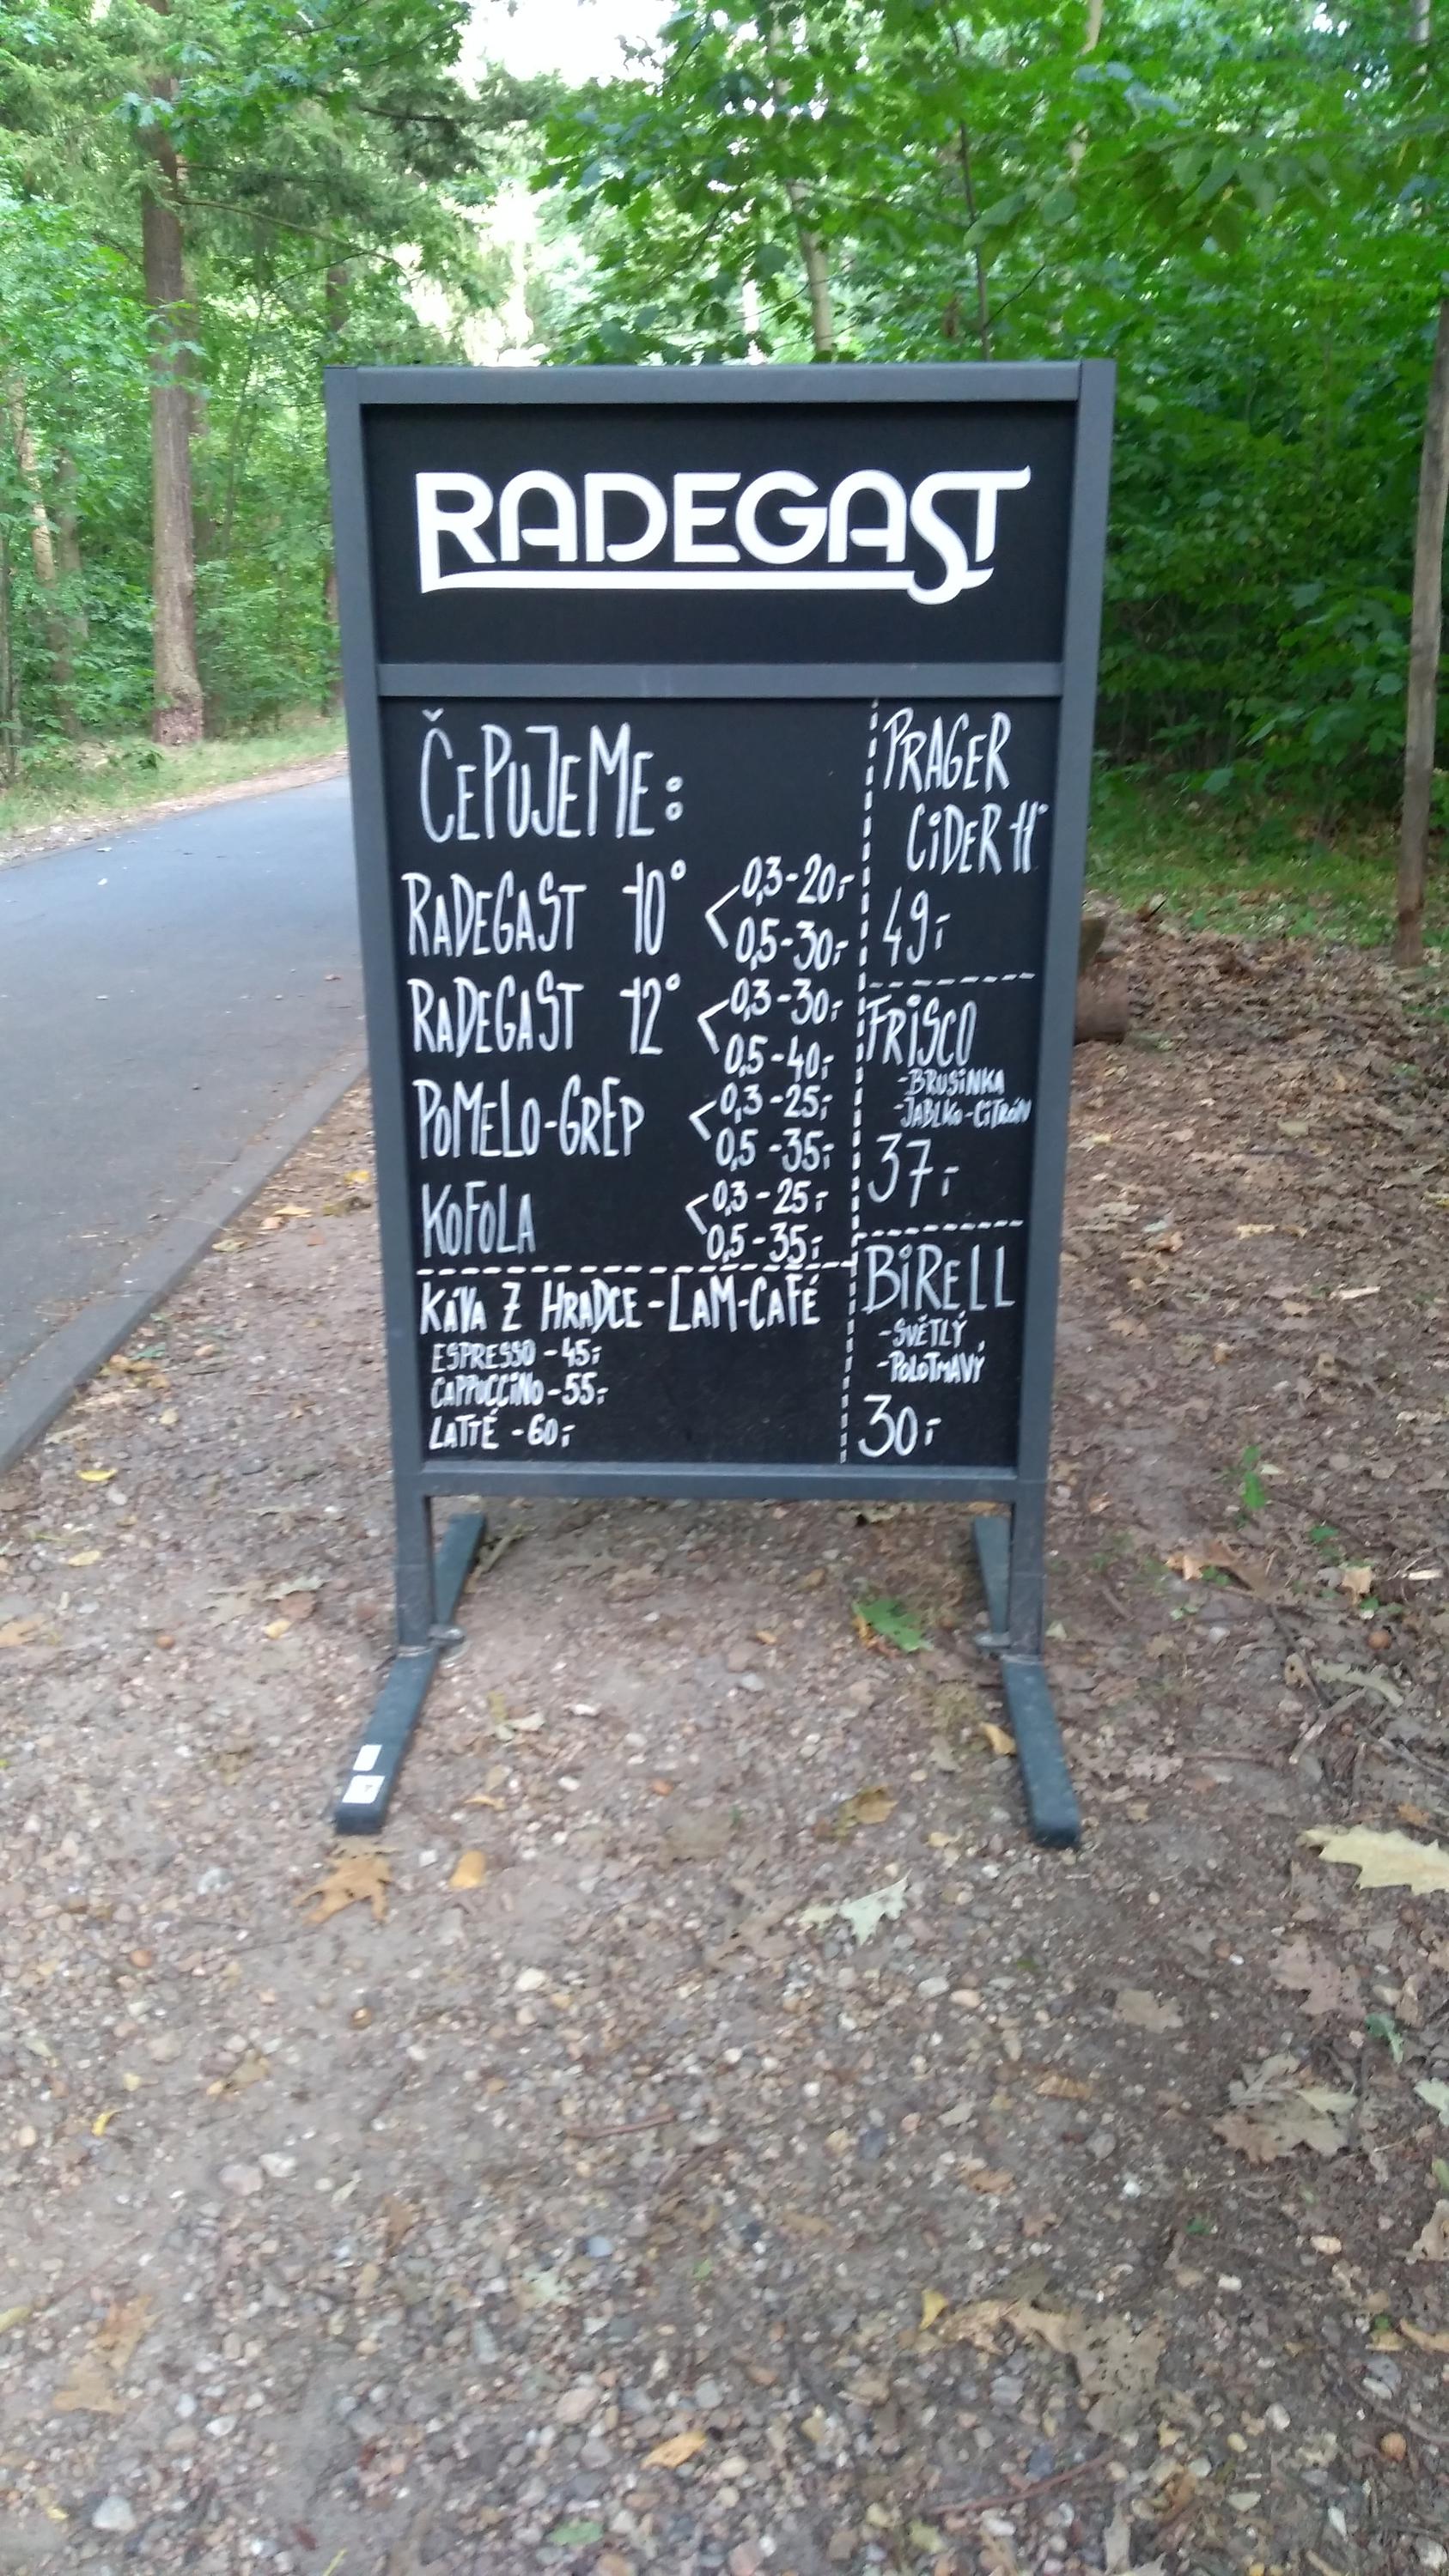 RADEGAST
ČEPUJEME:
RADEGAST 10°
0,3-20,-
0,5-30,-
RADEGAST 12°
0,3-30,-
0,5-40,-
POMELO-GREP
0,3-25,-
0,5-35,-
KOFOLA
0,3-25,-
0,5-35,-
KÁVA Z HRADCE-LAM-CAFÉ
ESPRESSO-45,-
CAPPUCCINO-55,-
LATTÉ-60,-
PRAGER
CIDER 11°
49,-
FRISCO
-BRUSINKA
-JABLKO-CITRÓN
37,-
BIRELL
-SVĚTLÝ
-POLOTMAVÝ
30,-